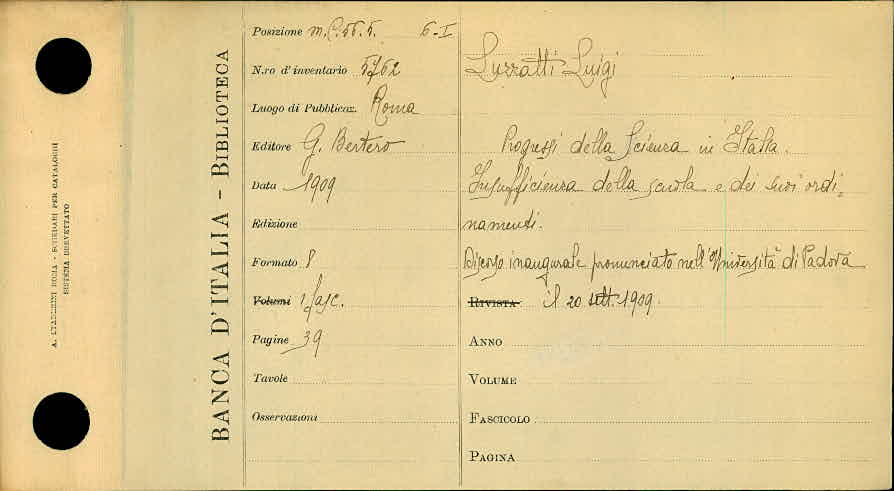 A. STADERINI ROMA - SCHEDARI PER CATALOGHI
SISTEMA BREVETTATO
BANCA D'ITALIA - BIBLIOTECA
Posizione m.C.56.5. 6-I
N.ro d'inventario 5762
Luogo di Pubblicaz. Roma
Editore G. Bertero
Data 1909
Edizione
Formato 8
Volumi 1 fasc.
Pagine 39
Tavole
Osservazioni
Luzzatti Luigi
Progressi della Scienza in Italia.
Insufficienza della scuola e dei suoi ordi=
namenti.
Discorso inaugurale pronunciato nell'Università di Padova
RIVISTA il 20 sett. 1909.
ANNO
VOLUME
FASCICOLO
PAGINA